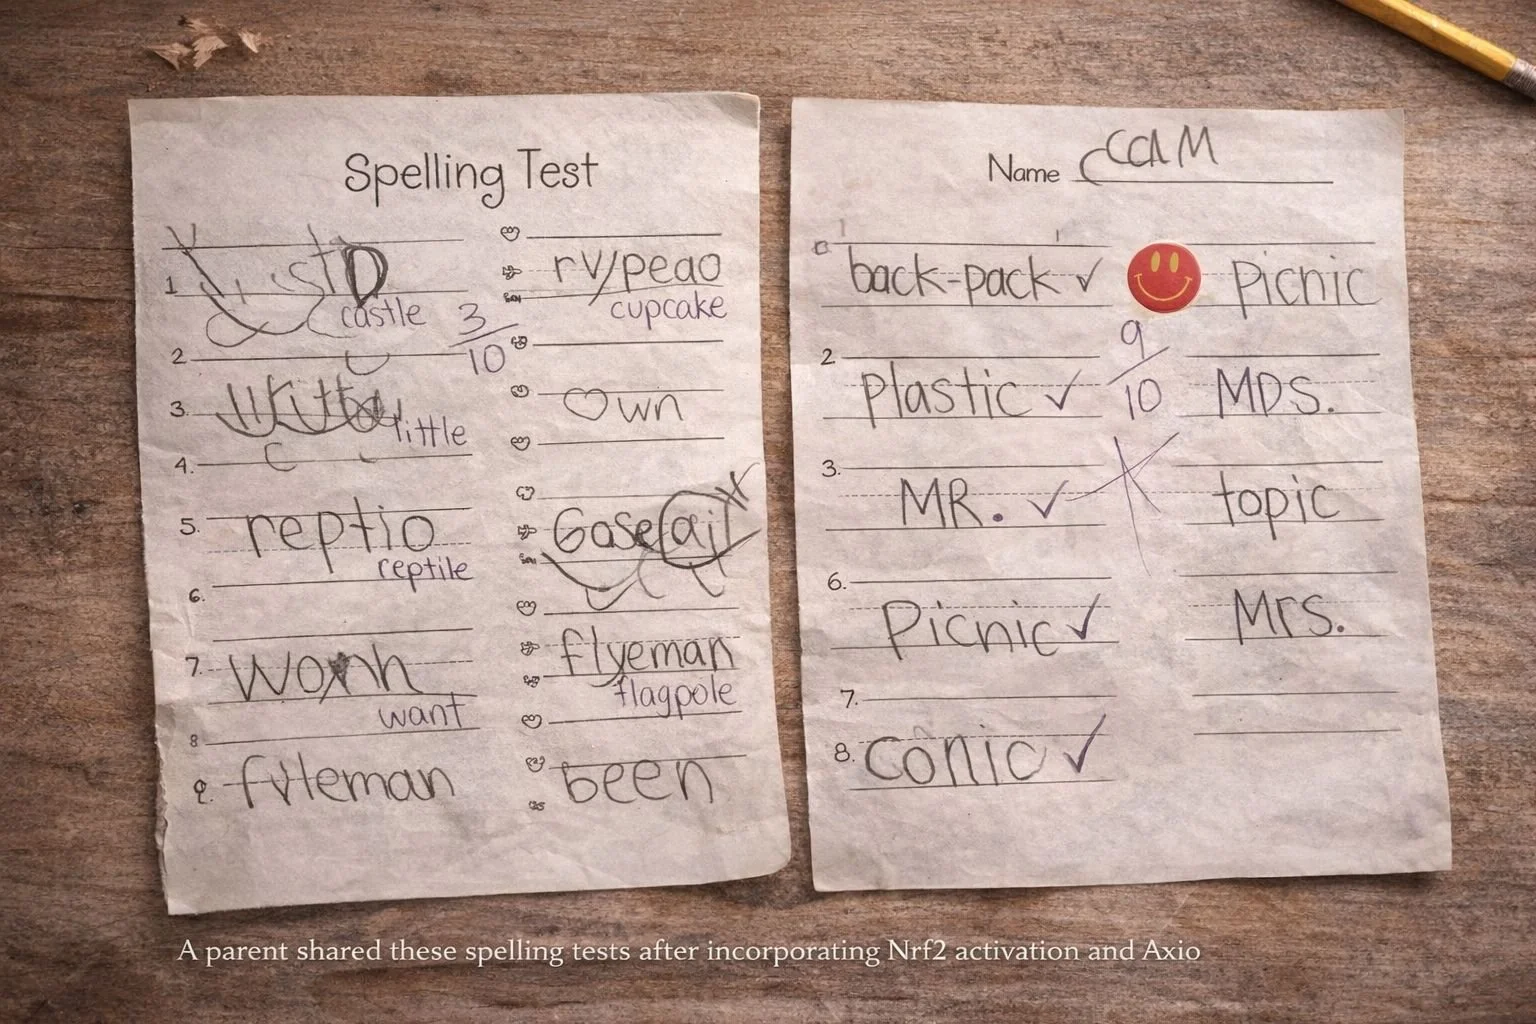 Spelling Test
1
castle
3/10
2
3.
little
4.
5.
reptio
reptile
6.
7.
want
8
9.
fyleman
rv/peao
cupcake
own
Gosefail
x
flyeman
flagpole
been
Name CCAM
back-pack ✓
2
plastic ✓
3.
MR. ✓
6.
Picnic ✓
7.
8. conic ✓
9/10
Picnic
MDS.
topic
Mrs.
A parent shared these spelling tests after incorporating Nrf2 activation and Axio